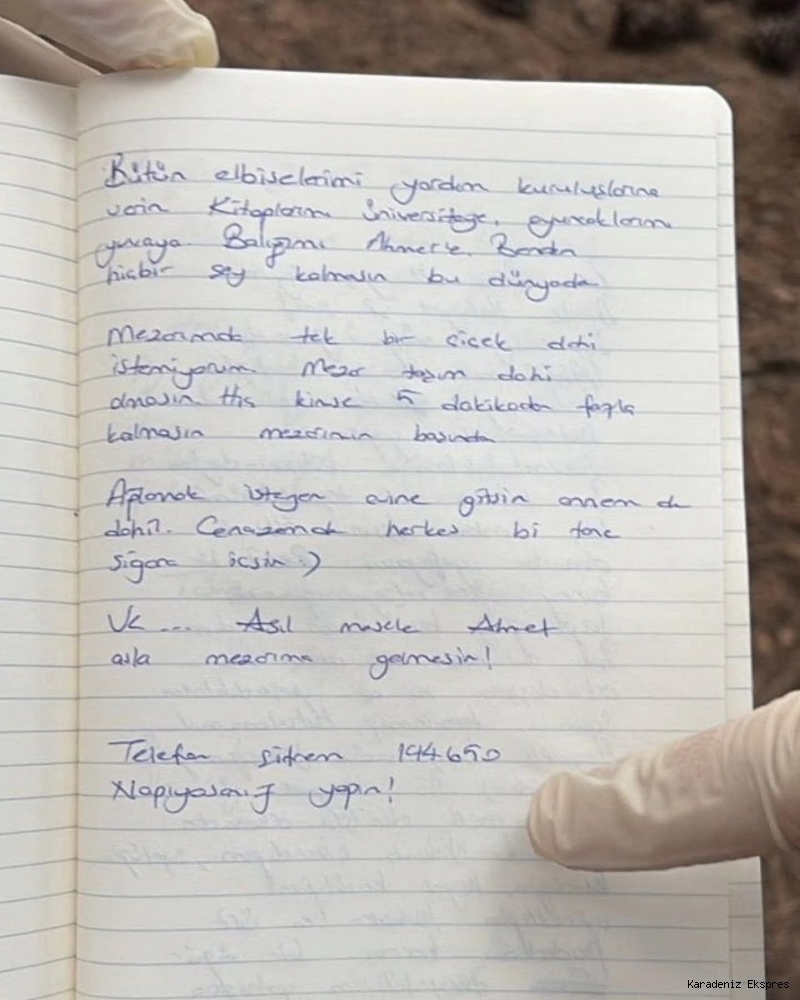 Bütün elbiselerimi yardım kuruluşlarına
verin Kitaplarımı üniversiteye, oyuncaklarımı
yuvaya. Balığımı Ahmet'e. Benden
hiçbir şey kalmasın bu dünyada
Mezarımda tek bir çicek dahi
istemiyorum. Mezar taşım dahi
olmasın Hiç kimse 5 dakikadan fazla
kalmasın mezarımın başında
Ağlamak isteyen evine gitsin annem de
dahil. Cenazemde herkes bi tane
sigara içsin :)
Ve... Asıl mesele Ahmet
asla mezarıma gelmesin!
Telefon şifrem 194650
Napıyosanız yapın!
Karadeniz Ekspres